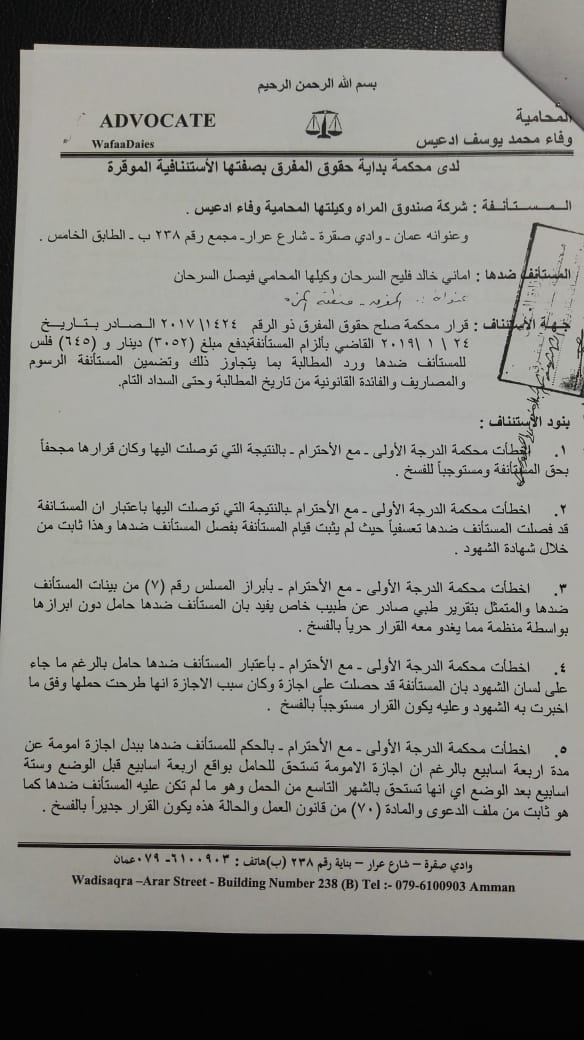 بسم الله الرحمن الرحيم
ADVOCATE
WafaaDaies
المحامية
وفاء محمد يوسف ادعيس
لدى محكمة بداية حقوق المفرق بصفتها الأستئنافية الموقرة
المستأنفة : شركة صندوق المراه وكيلتها المحامية وفاء ادعيس .
وعنوانه عمان - وادي صقرة - شارع عرار- مجمع رقم ٢٣٨ ب - الطابق الخامس .
المستأنف ضدها : اماني خالد فليح السرحان وكيلها المحامي فيصل السرحان
عنوانه :
جهة الأستئناف : قرار محكمة صلح حقوق المفرق ذو الرقم ١٤٢٤\٢٠١٧ الصادر بتاريخ
٢٤ \ ١ \ ٢٠١٩ القاضي بألزام المستأنفةبدفع مبلغ (٣٠٥٢) دينار و (٦٤٥) فلس
للمستأنف ضدها ورد المطالبة بما يتجاوز ذلك وتضمين المستأنفة الرسوم
والمصاريف والفائدة القانونية من تاريخ المطالبة وحتى السداد التام.
بنود الإستئناف :
١. اخطأت محكمة الدرجة الأولى - مع الأحترام - بالنتيجة التي توصلت اليها وكان قرارها مجحفاً
بحق المستأنفة ومستوجباً للفسخ .
٢. اخطأت محكمة الدرجة الأولى - مع الأحترام - بالنتيجة التي توصلت اليها باعتبار ان المستانفة
قد فصلت المستأنف ضدها تعسفياً حيث لم يثبت قيام المستأنفة بفصل المستأنف ضدها وهذا ثابت من
خلال شهادة الشهود .
٣. اخطأت محكمة الدرجة الأولى - مع الأحترام - بأبراز المسلس رقم (٧) من بينات المستأنف
ضدها والمتمثل بتقرير طبي صادر عن طبيب خاص يفيد بان المستأنف ضدها حامل دون ابرازها
بواسطة منظمة مما يغدو معه القرار حرياً بالفسخ .
٤. اخطأت محكمة الدرجة الأولى - مع الأحترام - بأعتبار المستأنف ضدها حامل بالرغم ما جاء
على لسان الشهود بان المستأنفة قد حصلت على اجازة وكان سبب الاجازة انها طرحت حملها وفق ما
اخبرت به الشهود وعليه يكون القرار مستوجباً بالفسخ .
٥. اخطأت محكمة الدرجة الأولى - مع الأحترام - بالحكم للمستأنف ضدها ببدل اجازة امومة عن
مدة اربعة اسابيع بالرغم ان اجازة الامومة تستحق للحامل بواقع اربعة اسابيع قبل الوضع وستة
اسابيع بعد الوضع اي انها تستحق بالشهر التاسع من الحمل وهو ما لم تكن عليه المستأنف ضدها كما
هو ثابت من ملف الدعوى والمادة (٧٠) من قانون العمل والحالة هذه يكون القرار جديراً بالفسخ .
وادي صقرة – شارع عرار – بناية رقم ٢٣٨ (ب)هاتف : ٦١٠٠٩٠٣-٠٧٩ عمان
Wadisaqra –Arar Street - Building Number 238 (B) Tel :- 079-6100903 Amman